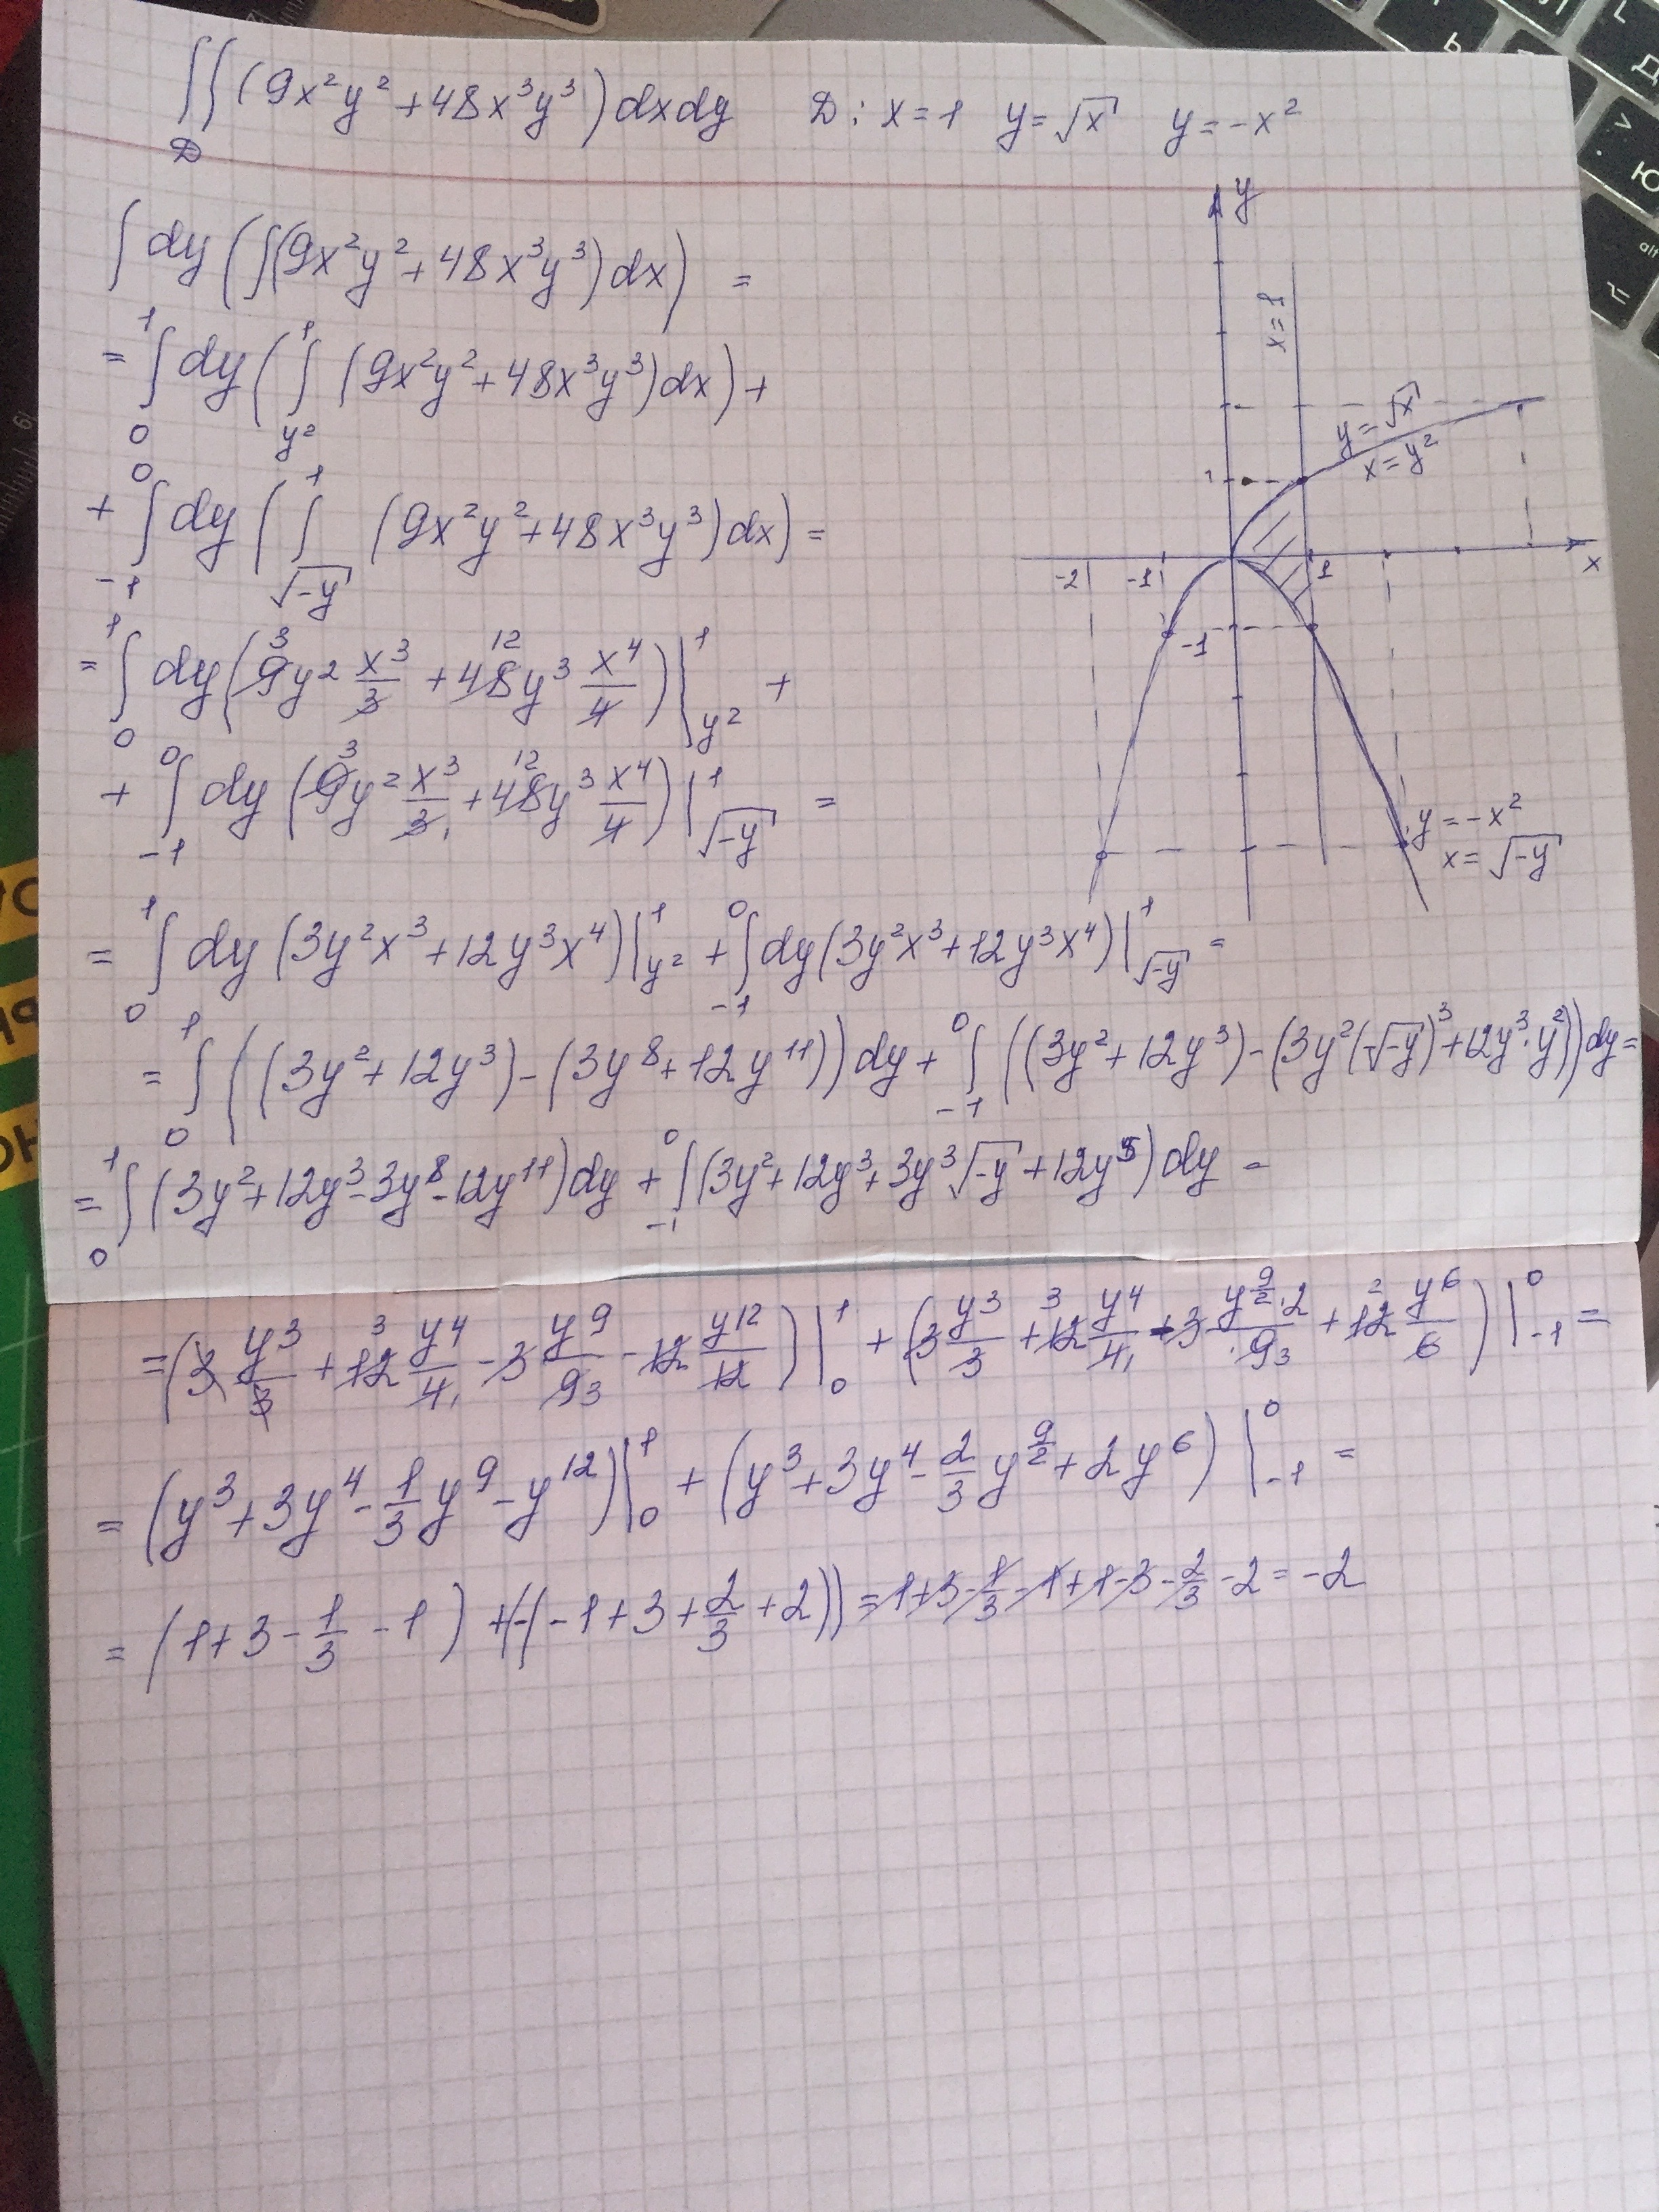 ∬_D (9x²y² + 48x³y³) dxdy   D: x=1   y=√x   y=-x²
∫ dy (∫(9x²y² + 48x³y³) dx) =
= ∫_0^1 dy (∫_{y²}^1 (9x²y² + 48x³y³) dx) +
+ ∫_{-1}^0 dy (∫_{√-y}^1 (9x²y² + 48x³y³) dx) =
= ∫_0^1 dy (9y² x³/3 + 48y³ x⁴/4) |_{y²}^1 +
3 12
+ ∫_{-1}^0 dy (9y² x³/3 + 48y³ x⁴/4) |_{√-y}^1 =
3 1 12
= ∫_0^1 dy (3y²x³ + 12y³x⁴) |_{y²}^1 + ∫_{-1}^0 dy (3y²x³ + 12y³x⁴) |_{√-y}^1 =
= ∫_0^1 ((3y² + 12y³) - (3y⁸ + 12y¹¹)) dy + ∫_{-1}^0 ((3y² + 12y³) - (3y²(√-y)³ + 12y³·y²)) dy =
= ∫_0^1 (3y² + 12y³ - 3y⁸ - 12y¹¹) dy + ∫_{-1}^0 (3y² + 12y³ + 3y³√-y + 12y⁵) dy =
= (3 y³/3 + 12 y⁴/4 - 3 y⁹/9 - 12 y¹²/12) |_0^1 + (3 y³/3 + 12 y⁴/4 + 3 y^{9/2}·2/9 + 12 y⁶/6) |_{-1}^0 =
3 1 3 3 1 3 2
= (y³ + 3y⁴ - 1/3 y⁹ - y¹²) |_0^1 + (y³ + 3y⁴ - 2/3 y^{9/2} + 2y⁶) |_{-1}^0 =
= (1 + 3 - 1/3 - 1) + (-(-1 + 3 + 2/3 + 2)) = 1 + 3 - 1/3 - 1 + 1 - 3 - 2/3 - 2 = -2
y
x=1
y=√x
x=y²
1
-2 -1 1 x
-1
y=-x²
x=√-y
alt
Ю